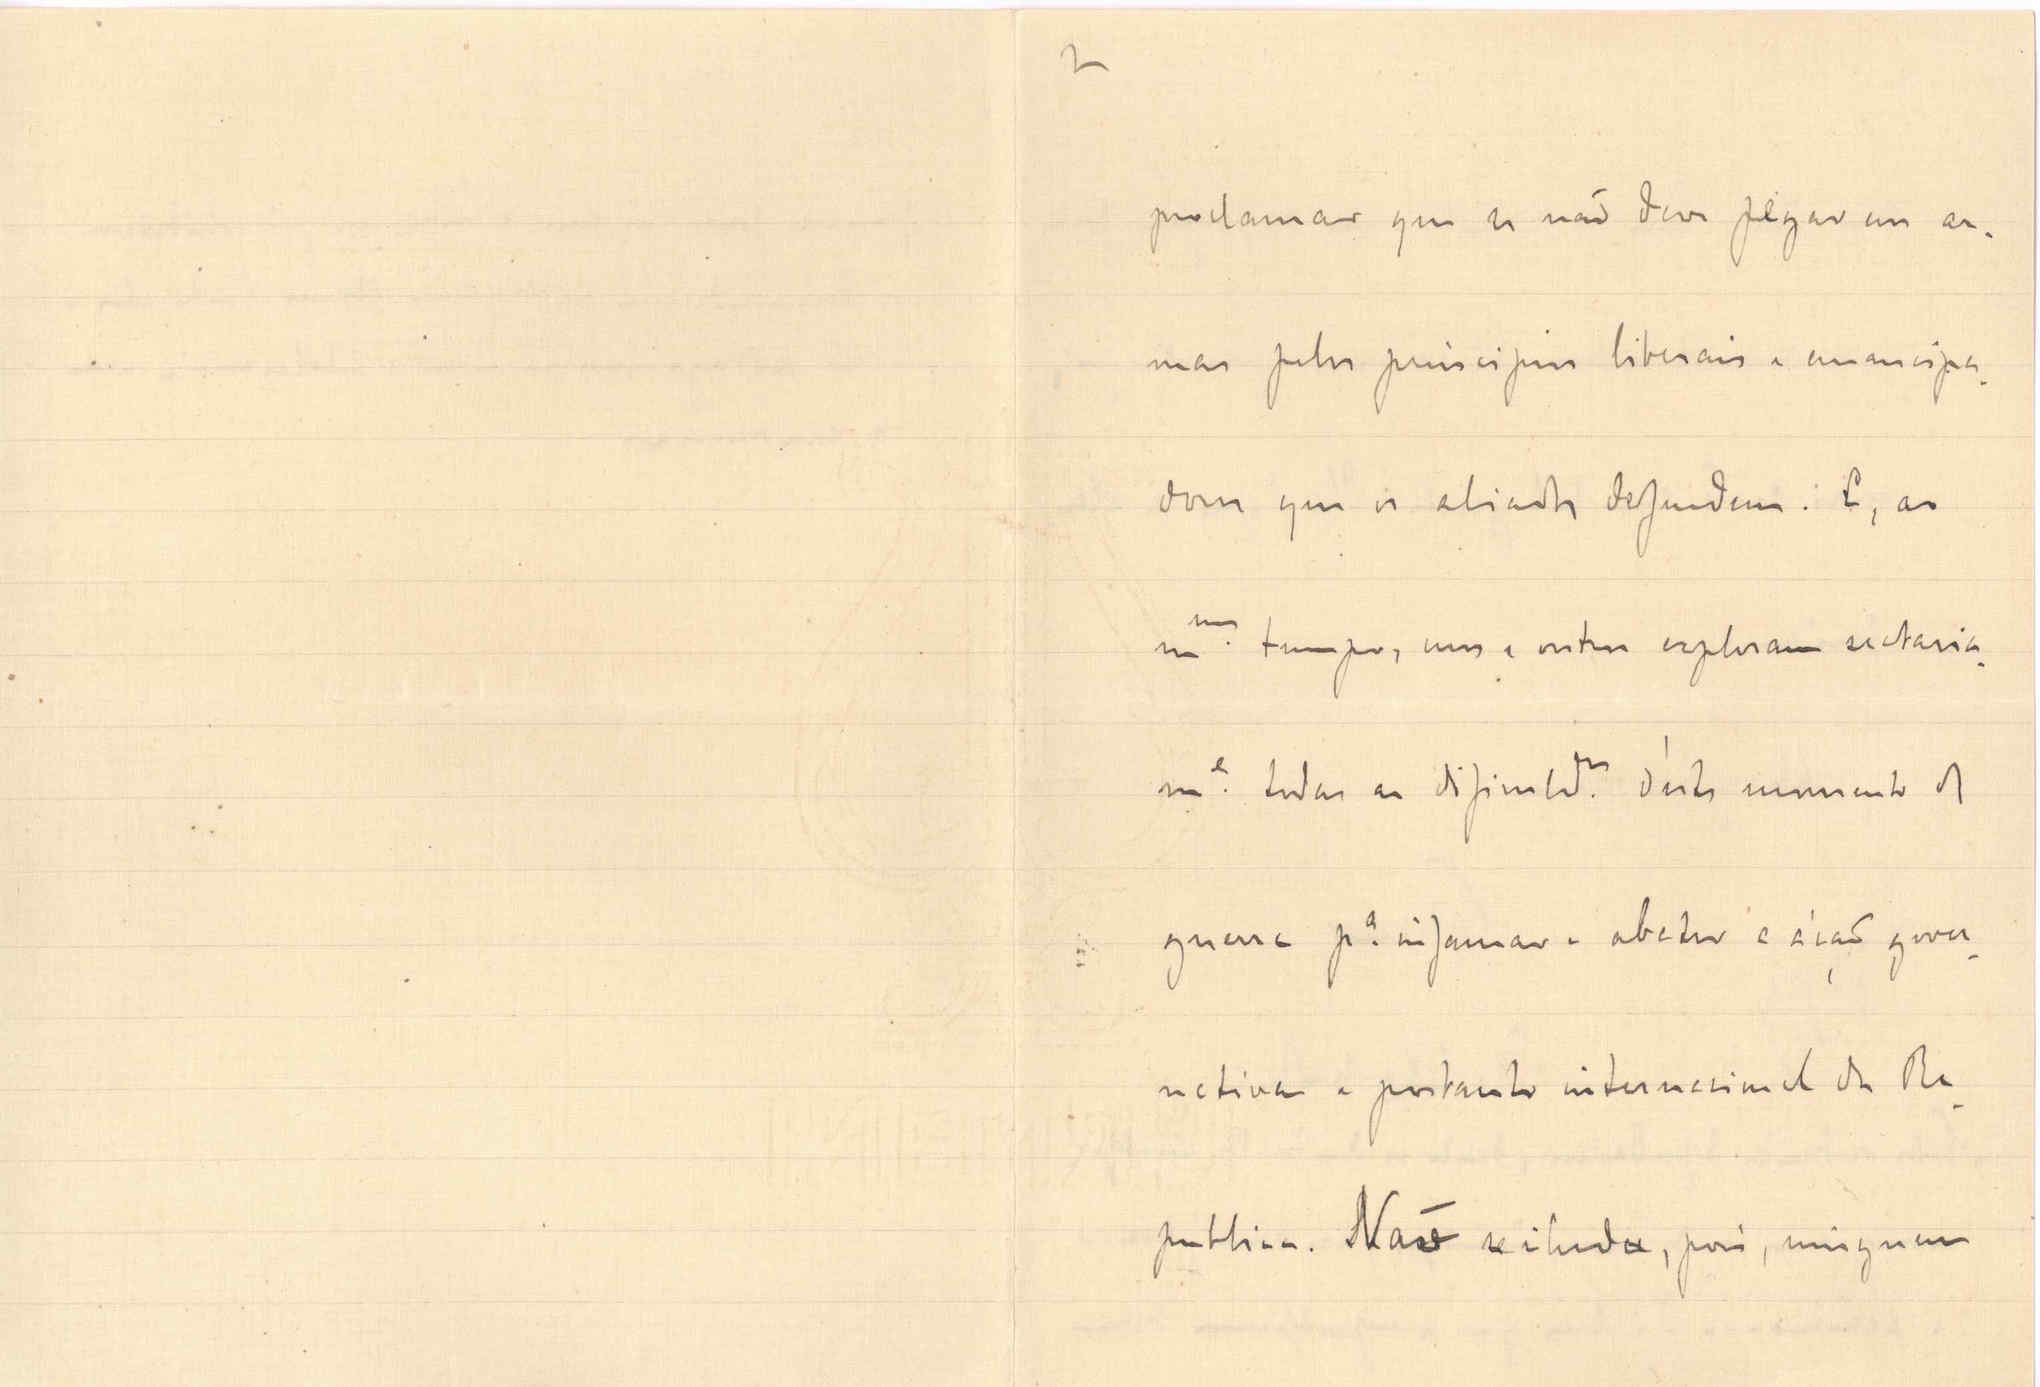 2
proclamar que se não deve pegar em ar-
mas pelos principios liberais e emancipa-
dores que os aliados defendem. E, ao
m.mo tempo, uns e outros exploram sectaria-
m.e todas as dificuld.es d'este momento de
guerra p.a infamar e abater a áção gover-
nativa e portanto internacional da Re-
publica. Não se iluda, pois, ninguem